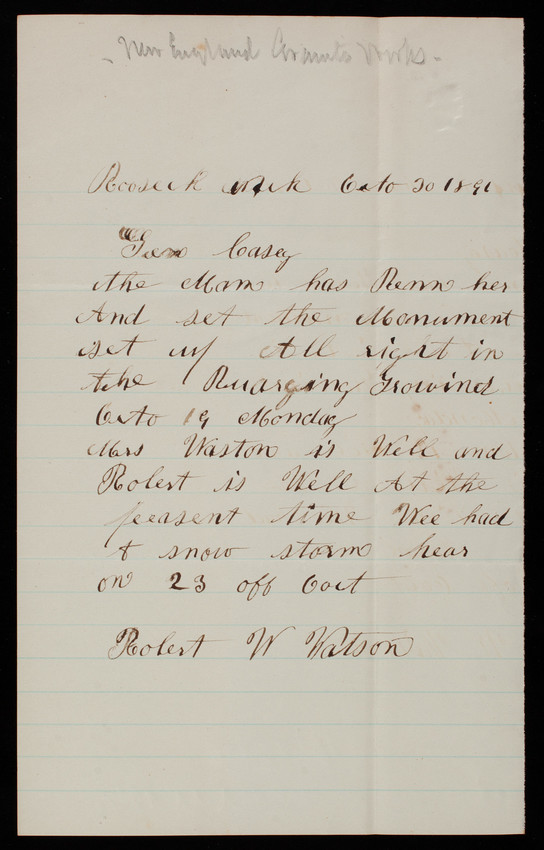 - New England Granite Works -
Octo 30 1891
Gen Casey
the Mam has Benn her
And set the Monument
set up All right in
the Buarging Growind
Octo 19 Monday
Mrs Waston is Well and
Robert is Well At the
peasent time Wee had
A snow storm hear
on 23 off Ooct
Robert W Watson